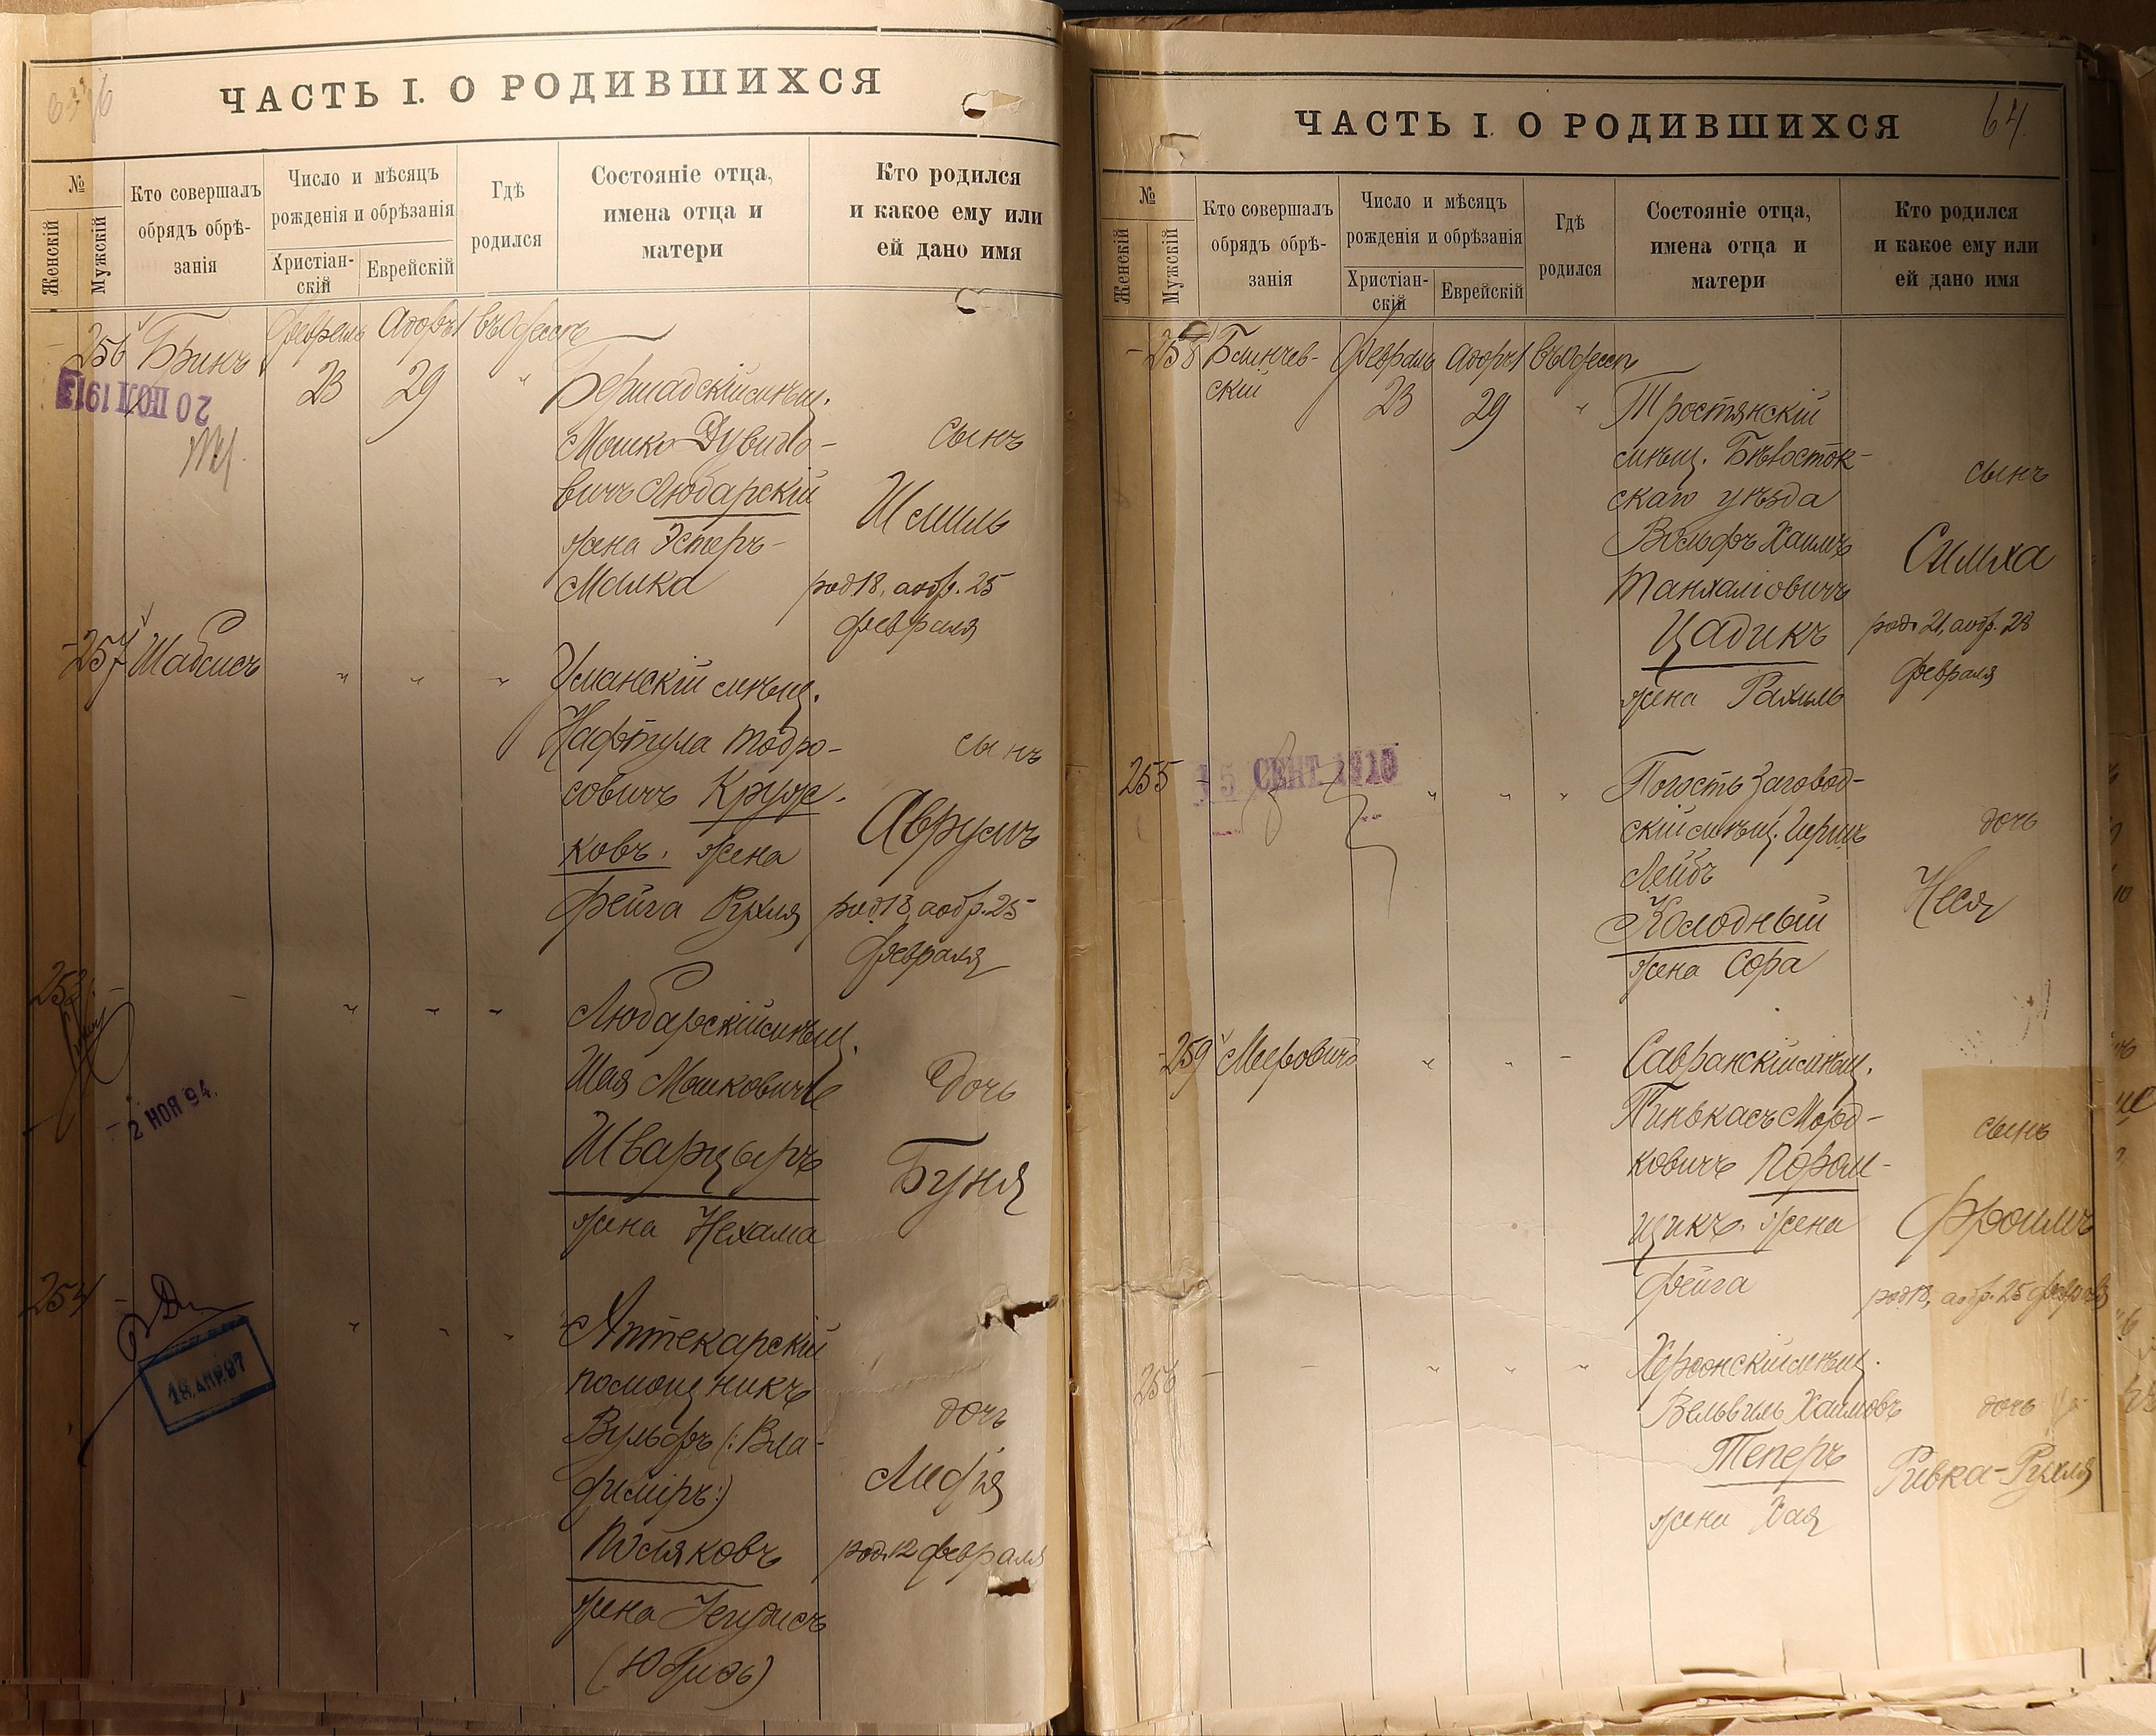 ЧАСТЬ I. О РОДИВШИХСЯ
№
Женскій
Мужскій
Кто совершалъ
обрядъ обрѣ-
занія
Число и мѣсяцъ
рожденія и обрѣзанія
Христіан-
скій
Еврейскій
Гдѣ
родился
Состояніе отца,
имена отца и
матери
Кто родился
и какое ему или
ей дано имя
256 Бринъ Февраль Адаръ I въ Одессѣ
20 ІЮЛ 1913
23 29 "
Бершадскій мѣщ.
Мошко Дувидо-
вичъ Любарскій
жена Эстеръ-
Малка
сынъ
Шмиль
род 18, а обр. 25
февраля
257 Шабсисъ " " "
Уманскій мѣщ.
Нафтула Тодро-
совичъ Круж-
ковъ. жена
Фейга Рухля
сынъ
Аврумъ
род 18, а обр. 25
февраля
253 - - " " "
2 НОЯ 94.
Любарскій мѣщ.
Шая Мошковичъ
Шварцыръ
жена Нехама
дочь
Буня
254 - " " "
18. АПР. 97
Аптекарскій
помощникъ
Вульфъ (: Вла-
диміръ:)
Поляковъ
жена Іегудисъ
(Юдифь)
дочь
Лидія
род. 12 февраля
ЧАСТЬ I. О РОДИВШИХСЯ
64.
№
Женскій
Мужскій
Кто совершалъ
обрядъ обрѣ-
занія
Число и мѣсяцъ
рожденія и обрѣзанія
Христіан-
скій
Еврейскій
Гдѣ
родился
Состояніе отца,
имена отца и
матери
Кто родился
и какое ему или
ей дано имя
258 Блинчев- Февраль Адаръ I въ Одессѣ
скій 23 29 "
Тростянскій
мѣщ. Бѣлосток-
скаго уѣзда
Вольфъ Хаимъ
Танхаліовичъ
Цадикъ
жена Рахиль
сынъ
Симха
род. 21, а обр. 28
февраля
255 - " " "
15 СЕНТ 1910
Погостъ Загород-
скій мѣщ. Гершъ
Лейбъ
Холодный
жена Сора
дочь
Неся
259 Мееровичъ " " "
Савранскій мѣщ.
Пинькасъ Морд-
ковичъ Порам-
щикъ. жена
Фейга
сынъ
Фроимъ
род 18, а обр. 25 февраля
256 - - " " "
Херсонскій мѣщ.
Вельвиль Хаимовъ
Теперъ
жена Хая
дочь
Ривка-Рухля